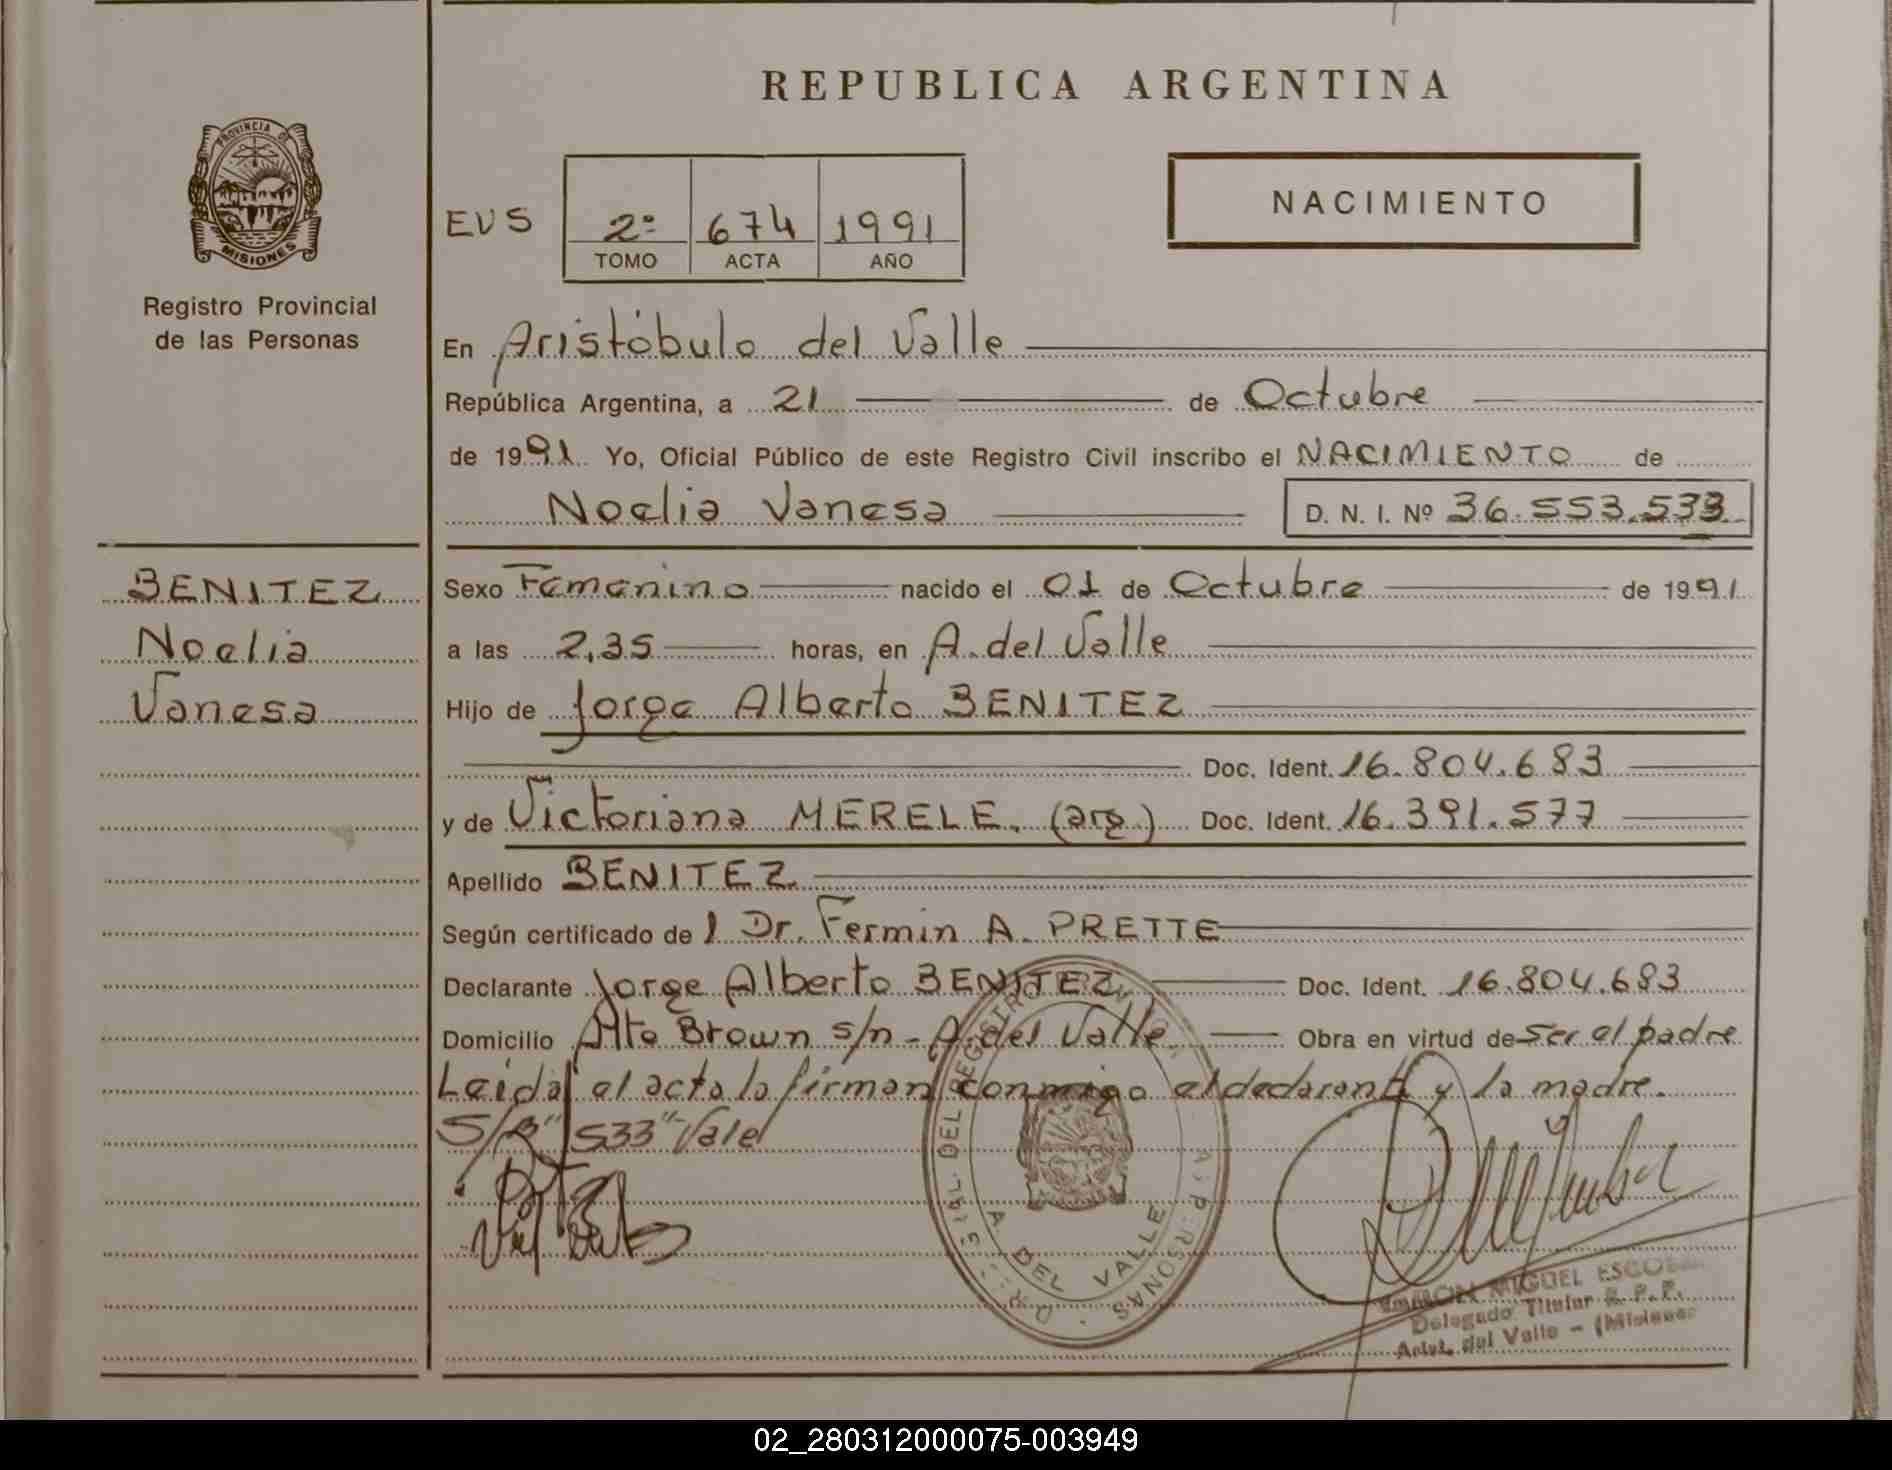 REPUBLICA ARGENTINA
PROVINCIA DE
MISIONES
Registro Provincial
de las Personas
NACIMIENTO
EVS 2º 674 1991
TOMO ACTA AÑO
En Aristóbulo del Valle
República Argentina, a 21 de Octubre
de 1991 Yo, Oficial Público de este Registro Civil inscribo el NACIMIENTO de
Noelia Vanesa D. N. I. Nº 36.553.533
BENITEZ
Noelia
Vanesa
Sexo Femenino nacido el 01 de Octubre de 1991
a las 2,35 horas, en A. del Valle
Hijo de Jorge Alberto BENITEZ
Doc. Ident. 16.804.683
y de Victoriana MERELE. (arg.) Doc. Ident. 16.391.577
Apellido BENITEZ
Según certificado de l Dr. Fermin A. PRETTE
Declarante Jorge Alberto BENITEZ Doc. Ident. 16.804.683
Domicilio Alte Brown s/n - A. del Valle. Obra en virtud de ser el padre
Leida el acta la firman conmigo el declarante y la madre.
S/R" 533" Vale
DEL REGISTRO
A. DEL VALLE
MIGUEL
Delegado Titular R. P. P.
del Valle - (Misiones
02_280312000075-003949